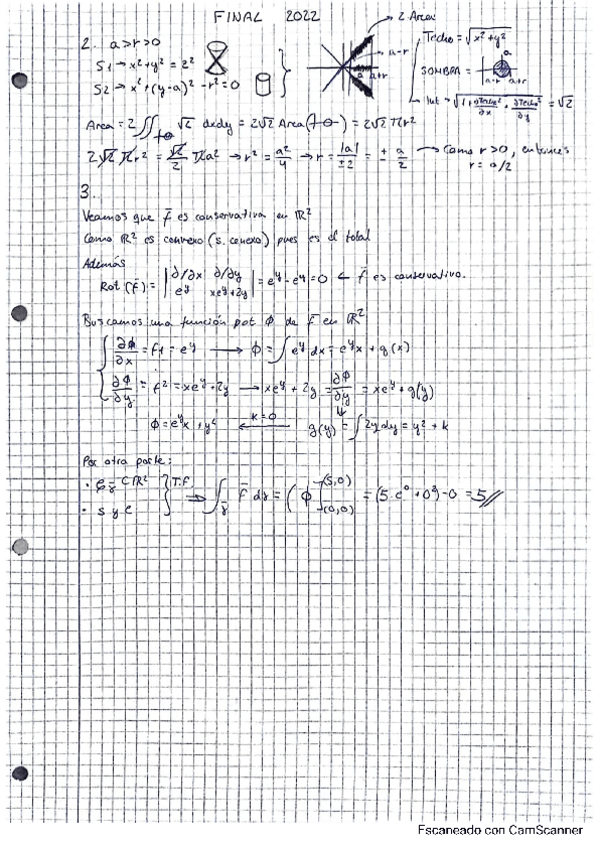 FINAL 2022
2. a>r>0
S1 → x²+y² = z²
S2 → x²+(y-a)² - r² = 0
2 Area
a-r
a a+r
Techo = √x²+y²
SOMBRA =
a
a-r a+r
Int = √1+∂Techo²/∂x + ∂Techo²/∂y = √2
Area = 2 ∬ √2 dxdy = 2√2 Area( ) = 2√2 πr²
2√2 πr² = √2/2 πa² → r² = a²/4 → r = |a|/±2 = ± a/2 → Como r>0, entonces
r = a/2
3.
Veamos que F̄ es conservativa en ℝ²
Como ℝ² es convexo (s. conexo) pues es el total
Además
Rot (F̄) = |∂/∂x ∂/∂y| = e^y - e^y = 0 ← F̄ es conservativo.
e^y xe^y+2y
Buscamos una función pot ϕ de F̄ en ℝ²
∂ϕ/∂x = f1 = e^y → ϕ = ∫ e^y dx = e^y x + g(x)
∂ϕ/∂y = f2 = xe^y+2y → xe^y + 2y = ∂ϕ/∂y = xe^y + g(y)
ϕ = e^y x + y² ← k=0 g(y) = ∫ 2y dy = y² + k
Por otra parte:
• C ℝ² } T.F
• s y c
⇒ ∫ F̄ dγ = ( ϕ (5,0) (0,0) = (5·e⁰ + 0²) - 0 = 5 //
Escaneado con CamScanner